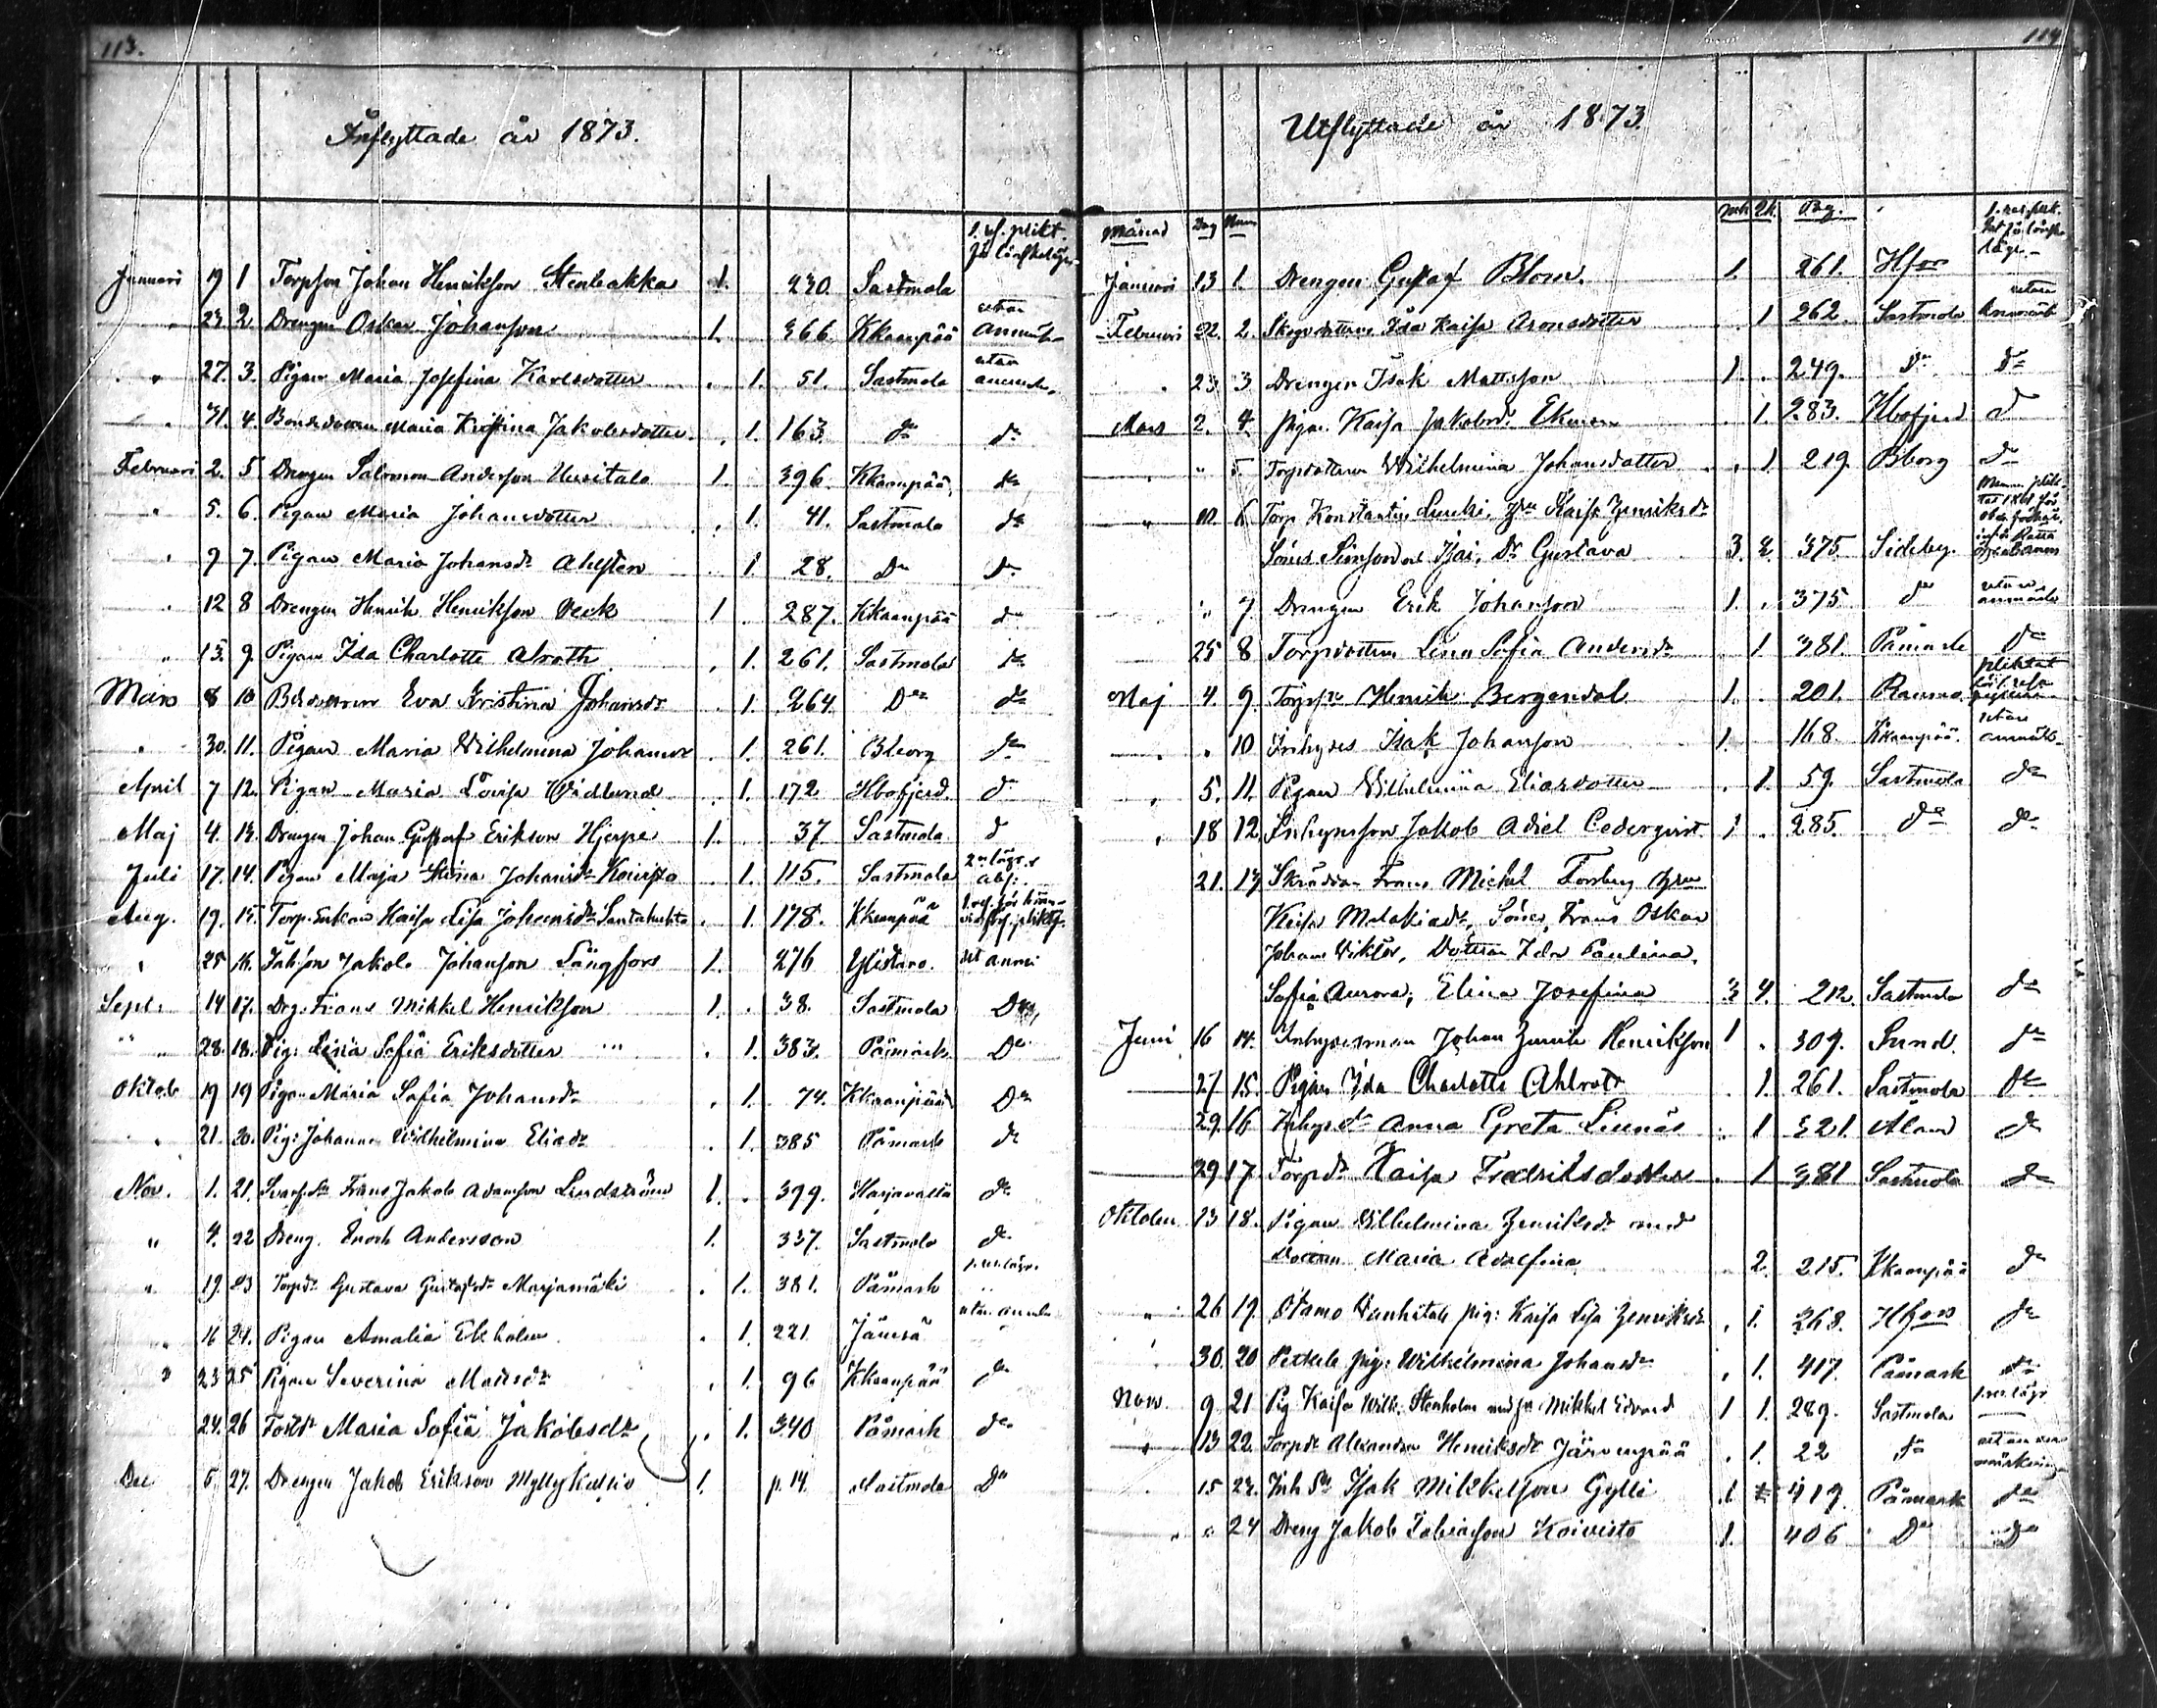 113.
Inflyttade år 1873.
Januari 19 1 Torpson Johan Henrikson Stenbakka 1. 230. Sastmola
" 23 2. Drengen Oskar Johanson 1. 366. Kkaanpää utan anmärk-
" 27. 3. Pigan Maria Josefina Karlsdotter . 1. 51. Sastmola utan anmärk.
" 31. 4. Maria Kristina Jakobsdotter . 1. 163 do do
Februari 2. 5 Drengen Salomon Anderson Uusitalo 1. 396. Kkaanpää do
" 5. 6. Pigan Maria Johansdotter . 1. 41. Sastmola do
" 9 7. Pigan Maria Johansdr Ahlsten . 1. 28. Do do
" 12 8 Drengen Henrik Henrikson Veck 1 . 287. Kkaanpää do
" 13. 9. Pigan Ida Charlotte Alroth . 1. 261. Sastmola do
Mars 8 10 Eva Kristina Johansdr . 1. 264. Do do
" 30. 11. Pigan Maria Wilhelmina Johansdr . 1. 261. Bborg do
April 7 12. Pigan Maria Lovisa Widlund . 1. 172 Kbofjerd. do
Maj 4. 13. Drengen Johan Gustaf Erikson Hjerpe 1. 37. Sastmola d
Juli 17. 14. Pigan Maja Stina Johansdr Koivisto . 1. 115. Sastmola 2 lägr.
Aug. 19. 15. Torp. Enkan Kaisa Lisa Johansdr Santahuhta . 1. 178. Kkaanpää
" 25 16. Jakob Johanson Långfors 1. 276 Ylistaro.
Sept. 14 17. Drg: Frans Mikkel Henrikson 1. . 38. Sastmola Do
" 28. 18. Pig: Lina Sofia Eriksdotter . 1. 383. Påmark Do
Oktob 19 19 Pigan Maria Sofia Johansdr . 1. 74. Kkaanpää Do
" 21. 20. Pig: Johanna Wilhelmina Eliadr . 1. 385 Påmark do
Nov. 1. 21. Frans Jakob Adamson Lindström 1. . 399. Harjavalta do
" 4. 22 Dreng. Enoch Andersson 1. 337. Sastmola do
" 19. 23 Torpdr Gustava Gustafsdr Marjamäki . 1. 381. Påmark
" 16 24. Pigan Amalia Ekholm . 1. 221 Jämsä utan anmärk
" 23 25 Pigan Severina Mattsdr . 1. 96 Kkaanpää do
24. 26 Maria Sofia Jakobsdr . 1. 340 Påmark do
Dec 5 27. Drengen Jakob Erikson Myllykallio 1. p. 14. Sastmola Do
114
Utflyttade år 1873.
Månad Dag Num Mk Qk Pag.
Januari 13 1. Drengen Gustaf Blom. 1 261. Hfors
Februari 22. 2. Ida Kaisa Aronsdotter . 1 262. Sastmola utan
" 23 3 Drengen Isak Mattsson 1. . 249. Do Do
Mars 2. 4. Pigan Kaisa Jakobsdr Ekman . 1. 283. Kbofjerd d
" " 5 Torpdottern Wilhelmina Johansdotter . 1 219. Bborg Do
" 10. 6 Torp Konstantin Kaisa Henriksdr
Söner Simson och Isai, Dr Gustava 3. 2. 375. Sideby.
" 7 Drengen Erik Johanson 1. . 375. d utan anmärk
25 8 Torpdottern Lina Sofia Andersdr . 1. 381. Påmark Do
Maj 4. 9. Henrik Bergendal 1. . 201. Raumo.
" " 10 Inhyses Isak Johanson 1. 168. Kkaanpää. utan anmärk-
" 5. 11. Pigan Wilhelmina Eliasdotter . 1. 59. Sastmola do
" 18 12. Inhyseson Jakob Adiel Cederqvist 1 . 285. do do
21. 13 Skräddar Frans Mickel Forsberg
Kaisa Malakiadr, Söner, Frans Oskar
Johan Viktor, Dottrar Ida Paulina,
Sofia Aurora, Elina Josefina 3 4. 212. Sastmola do
Juni 16 14. Johan Henrik Henrikson 1 . 309. Sund. do
27 15. Pigan Ida Charlotte Ahlroth . 1. 261. Sastmola Do
29. 16 Inhysdr Anna Greta Liunäs . 1 321. Åland do
29 17 Torpdr Kaisa Fredriksdotter . 1 381 Sastmola do
Oktober 13 18. Pigan Wilhelmina Henriksdr med
Dottern Maria Adolfina . 2. 215. Kkaanpää do
" 26 19. Otamo Wanhatalo pig: Kaisa Lisa Henriksdr . 1. 268. Hfors do
" 30. 20 pig: Wilhelmina Johansdr . 1. 417. Påmark do
Nov. 9 21 Pig Kaisa Wilh. Stenholm med son Mikkel Edvard 1 1. 289. Sastmola
" 13 22. Torpdr Alexandra Henriksdr Järvenpää . 1. 22 do utan anmärkning
" 15 23. Inh Sn Isak Mikkelson Gylli 1 419. Påmark do
" " 24 Dreng Jakob Tobiasson Koivisto 1. 406 Do Do